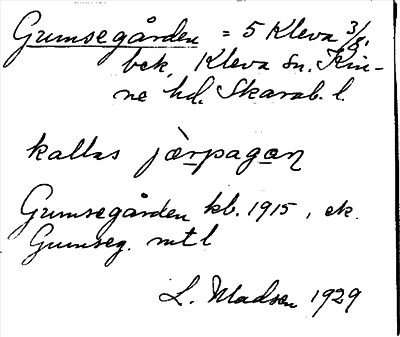 Gumsegården = 5 Kleva 3/8,
bek, Kleva sn. Kin-
ne hd. Skarab. l.
kallas
Gumsegården kb. 1915, ek.
Gumseg. mtl
L. Madsen 1929